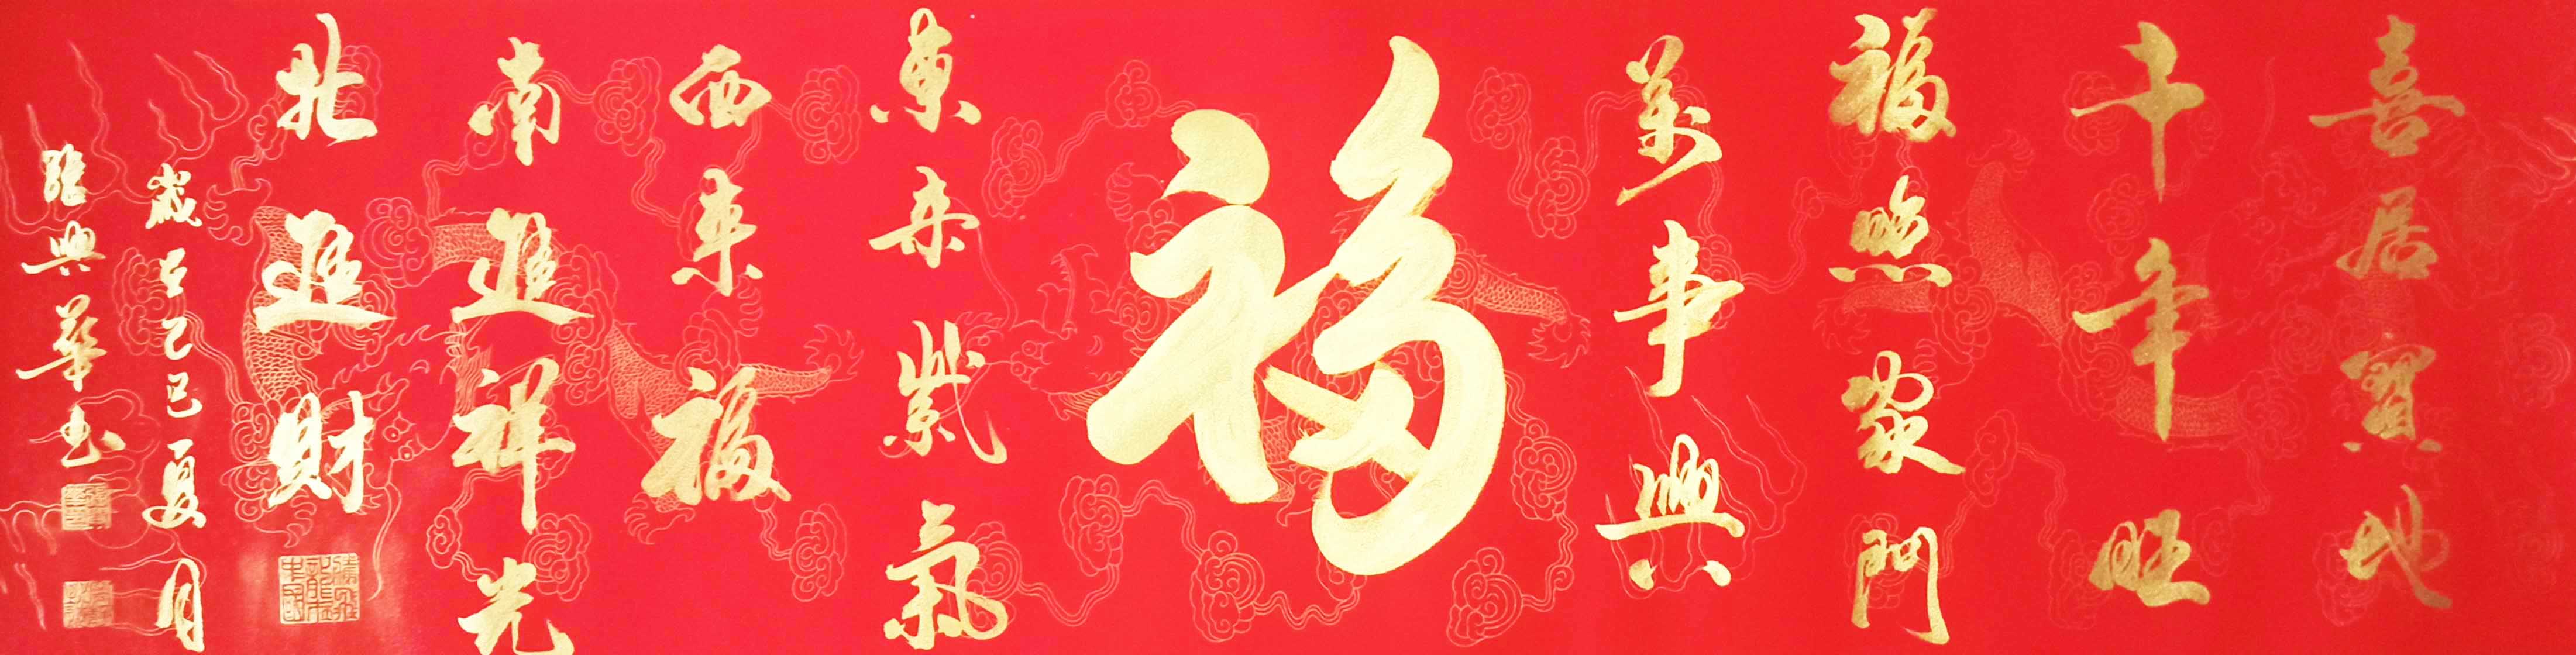 喜居寶地
千年旺
福照家門
萬事興
福
東来紫氣
西来福
南進祥光
北進財
歲乙巳夏月
張興華书